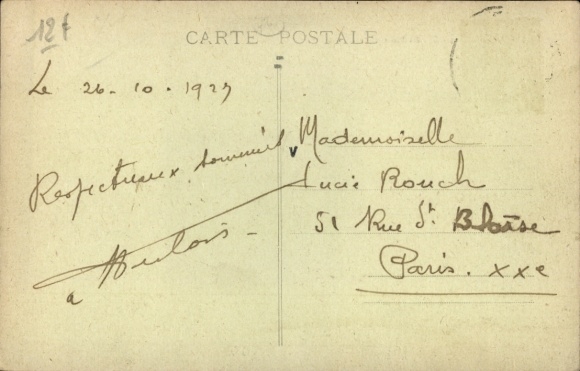 12f
CARTE POSTALE
Le 26-10.1927
Respectueux
Mademoiselle
Lucie Rouch
51 Rue St Blaise
Paris. XXe